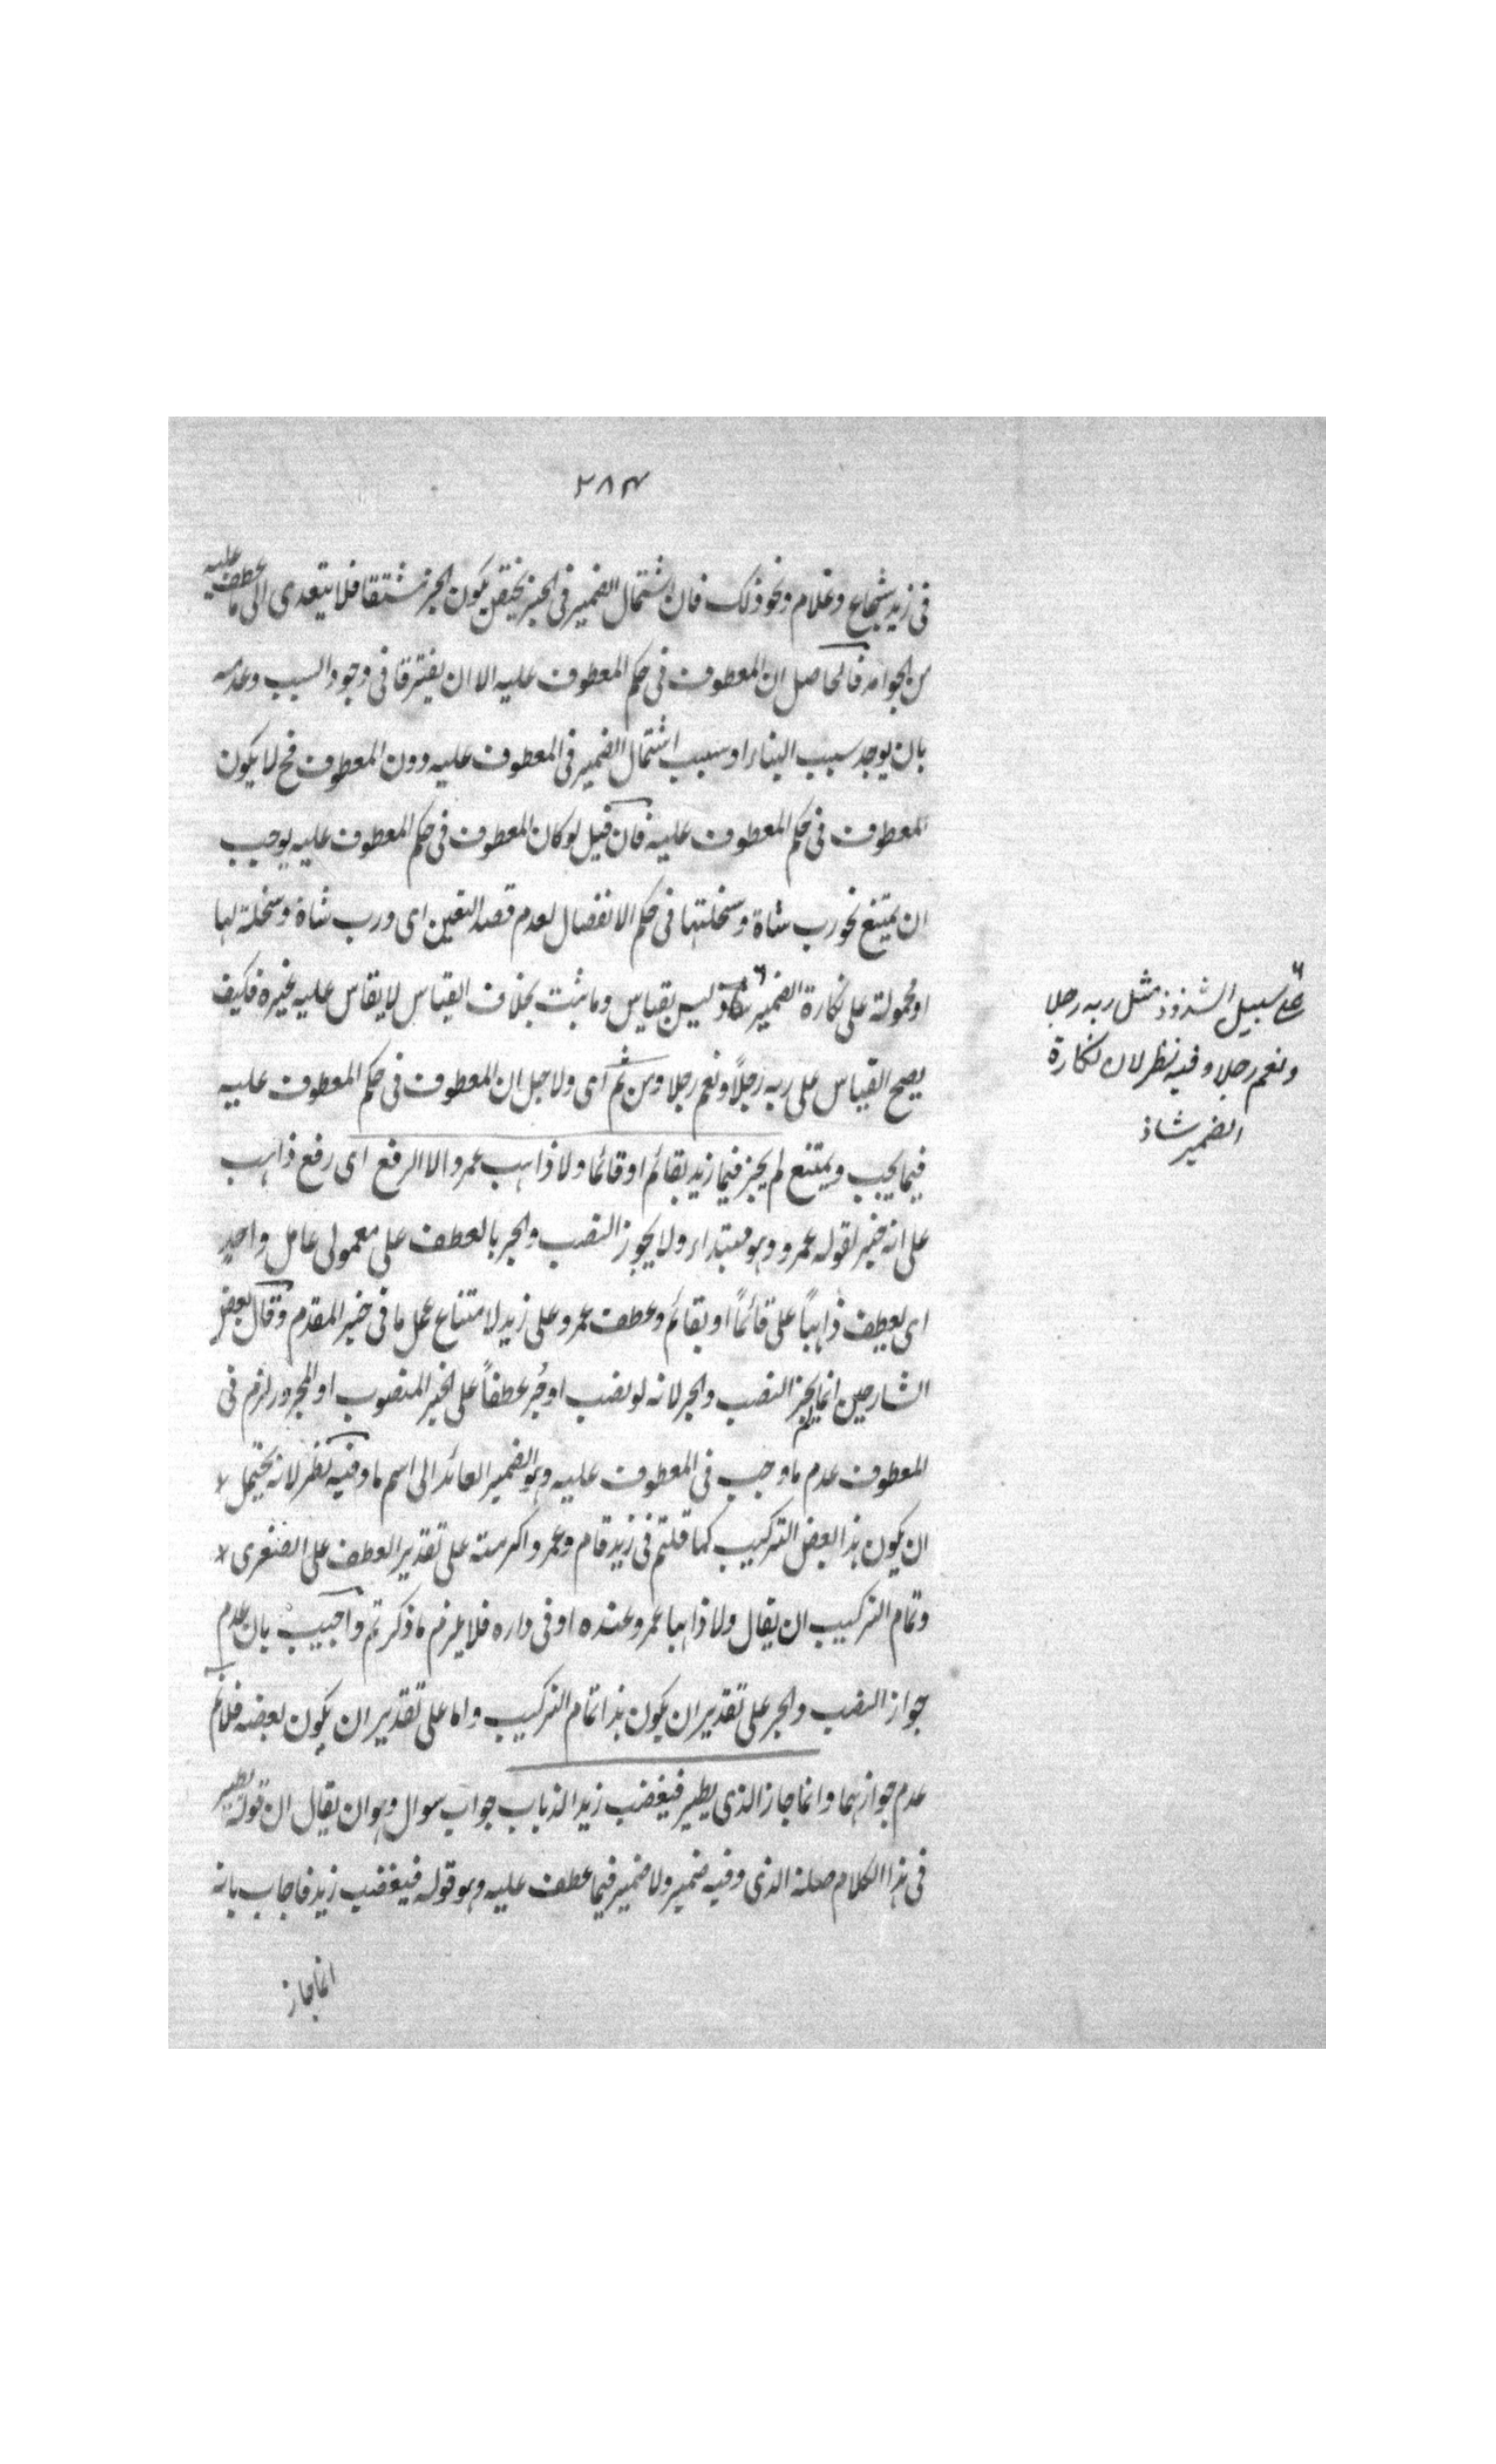 ٢٨٣
فى زيد شجاع وغلام ونحو ذلك فان اشتمال الضمير فى الخبر يختص بكون الخبر مشتقا فلا يتعدى الى ما عطف عليه
من الجوامد فالحاصل ان المعطوف فى حكم المعطوف عليه الا ان يفترقا فى وجود السبب وعدمه
بان يوجد سبب البناء او سبب اشتمال الضمير فى المعطوف عليه دون المعطوف فح لا يكون
المعطوف فى حكم المعطوف عليه فان قيل لو كان المعطوف فى حكم المعطوف عليه يوجب
ان يمتنع نحو رب شاة وسخلتها فى حكم الانفصال لعدم قصد التعين اى ورب شاة وسخلة لها
او محمولة على نكارة الضمير وليس بقياس وما ثبت بخلاف القياس لا يقاس عليه غيره فكيف
يصح القياس على ربه رجلاً ونعم رجلا ومن ثم اى ولاجل ان المعطوف فى حكم المعطوف عليه
فيما يجب ويمتنع لم يجز فيما زيد بقائم او قائما ولا ذاهب عمرو الا الرفع اى رفع ذاهب
على انه خبر لقوله عمرو وهو مبتداء ولا يجوز النصب والجر بالعطف على معمولى عامل واحد
اى بعطف ذاهباً على قائماً او بقائم وعطف عمرو على زيد لامتناع عمل ما فى خبر المقدم وقال بعض
الشارحين انما لم يجز النصب والجر لانه لو نصب او جُر عطفاً على الخبر المنصوب او المجرور لزم فى
المعطوف عدم ما وجب فى المعطوف عليه وهو الضمير العائد الى اسم ما وفيه نظر لانه يحتمل *
ان يكون هذا بعض التركيب كما قلتم فى زيد قام وعمرو اكرمته على تقدير العطف على الصغرى *
وتمام التركيب ان يقال ولا ذاهبا عمرو عنده او فى داره فلا يلزم ما ذكرتم واجيب بان عدم
جواز النصب والجر على تقدير ان يكون هذا تمام التركيب واما على تقدير ان يكون بعضه فلا نم
عدم جوازهما وانما جاز الذى يطير فيغضب زيد الذباب جواب سوال وهو ان يقال ان قوله يطير
فى هذا الكلام صلة الذى وفيه ضمير ولا ضمير فيما عطف عليه وهو قوله فيغضب زيد فاجاب بانه
انما جاز
على سبيل الشذوذ مثل ربه رجلا
ونعم رجلا وفيه نظر لان نكارة
الضمير شاذ